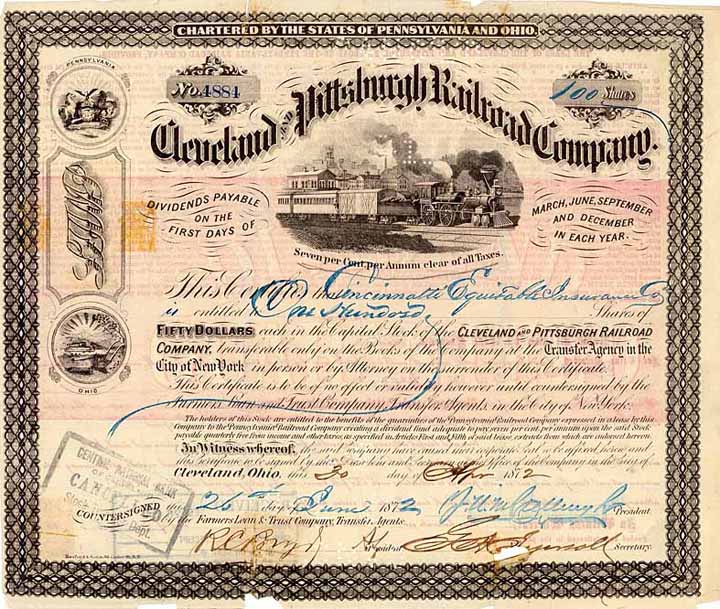 CHARTERED BY THE STATES OF PENNSYLVANIA AND OHIO.
PENNSYLVANIA
No. 4884
100 Shares
Cleveland AND Pittsburgh Railroad Company.
DIVIDENDS PAYABLE
ON THE
FIRST DAYS OF
MARCH, JUNE, SEPTEMBER
AND DECEMBER
IN EACH YEAR.
Seven per Cent. per Annum clear of all Taxes.
This Certifies that Cincinnati Equitable Insurance Co
is entitled to One Hundred Shares of
FIFTY DOLLARS each in the Capital Stock of the CLEVELAND AND PITTSBURGH RAILROAD
COMPANY, transferable only on the Books of the Company at the Transfer Agency in the
City of New York in person or by Attorney on the surrender of this Certificate.
This Certificate is to be of no effect or validity however until countersigned by the
Farmers Loan and Trust Company, Transfer Agents, in the City of New York.
The holders of this Stock are entitled to the benefits of the guaranties of the Pennsylvania Railroad Company expressed in a lease by this
Company to the Pennsylvania Railroad Company creating a dividend fund adequate to pay seven per cent. per annum upon the said Stock
payable quarterly free from income and other taxes, as specified in Articles First and Fifth of said lease, extracts from which are endorsed hereon.
In Witness whereof, the said Company have caused their corporate seal to be affixed hereto, and
this Certificate to be signed by the President and Secretary at the Office of the Company in the City of
Cleveland, Ohio, this 20 day of Apr 1872
OHIO
CENTRAL NATIONAL BANK
Stock Dept.
COUNTERSIGNED this 26th day of June 1872
President.
by the Farmers Loan & Trust Company, Transfer Agents.
Secretary.